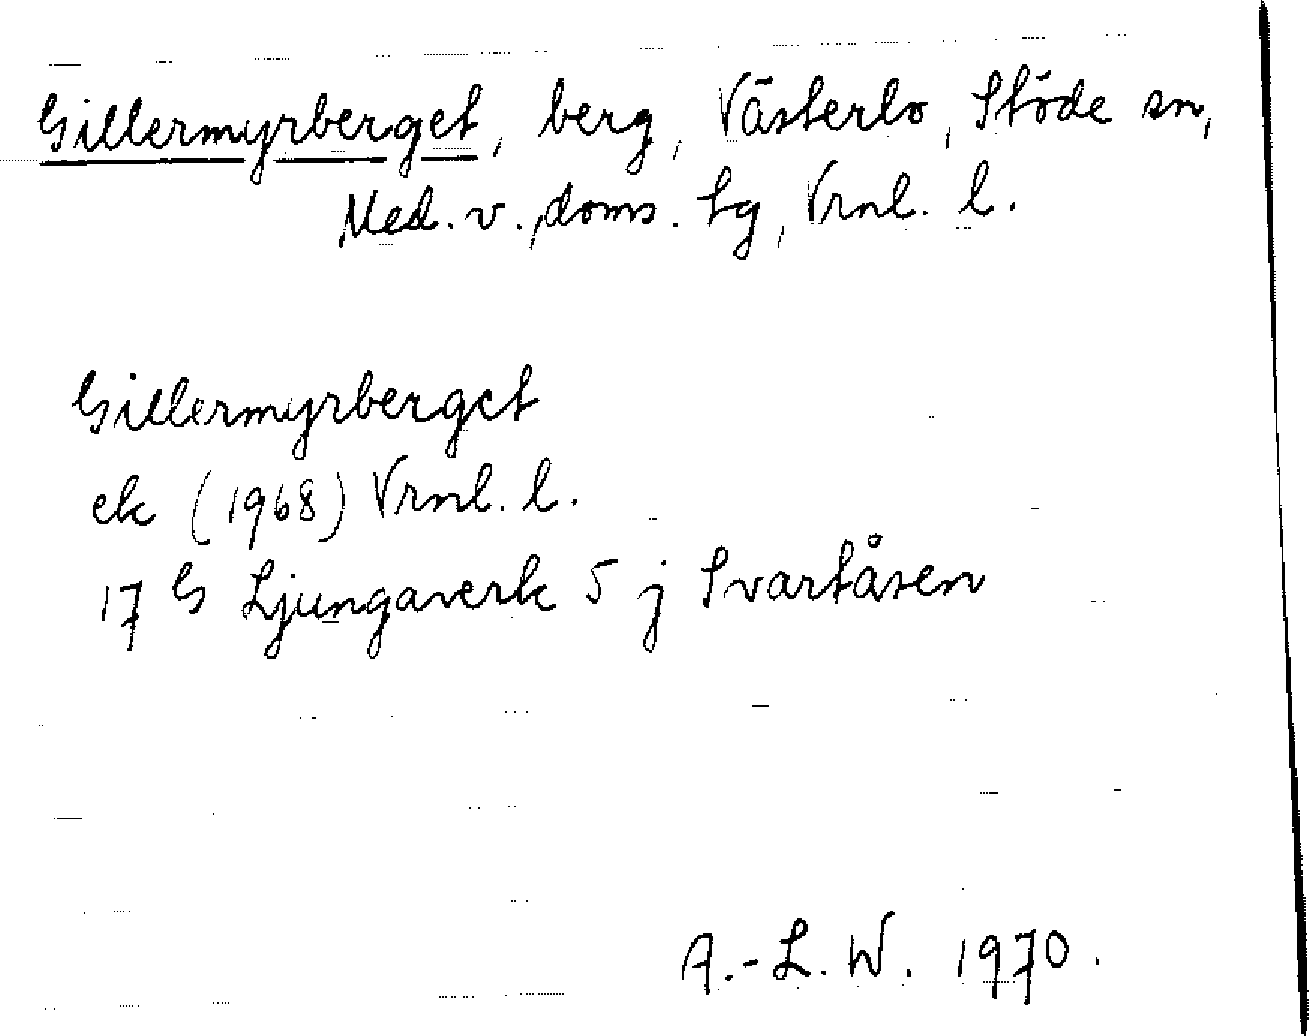 Gillermyrberget, berg, Västerlo, Stöde sn,
Med. v., doms. tg, Vrnl. l.
Gillermyrberget
ek (1968) Vrnl. l.
17 G Ljungaverk 5 j Svartåsen
A.-L. W. 1970.